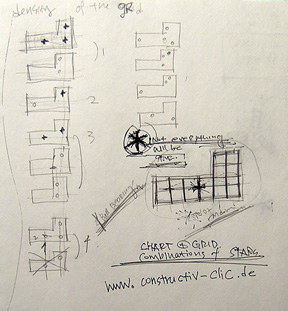 density of the grid
1
2
3
4
Not everything
will be
CHART @ GRID
combinations of STARS
www.constructiv-clic.de